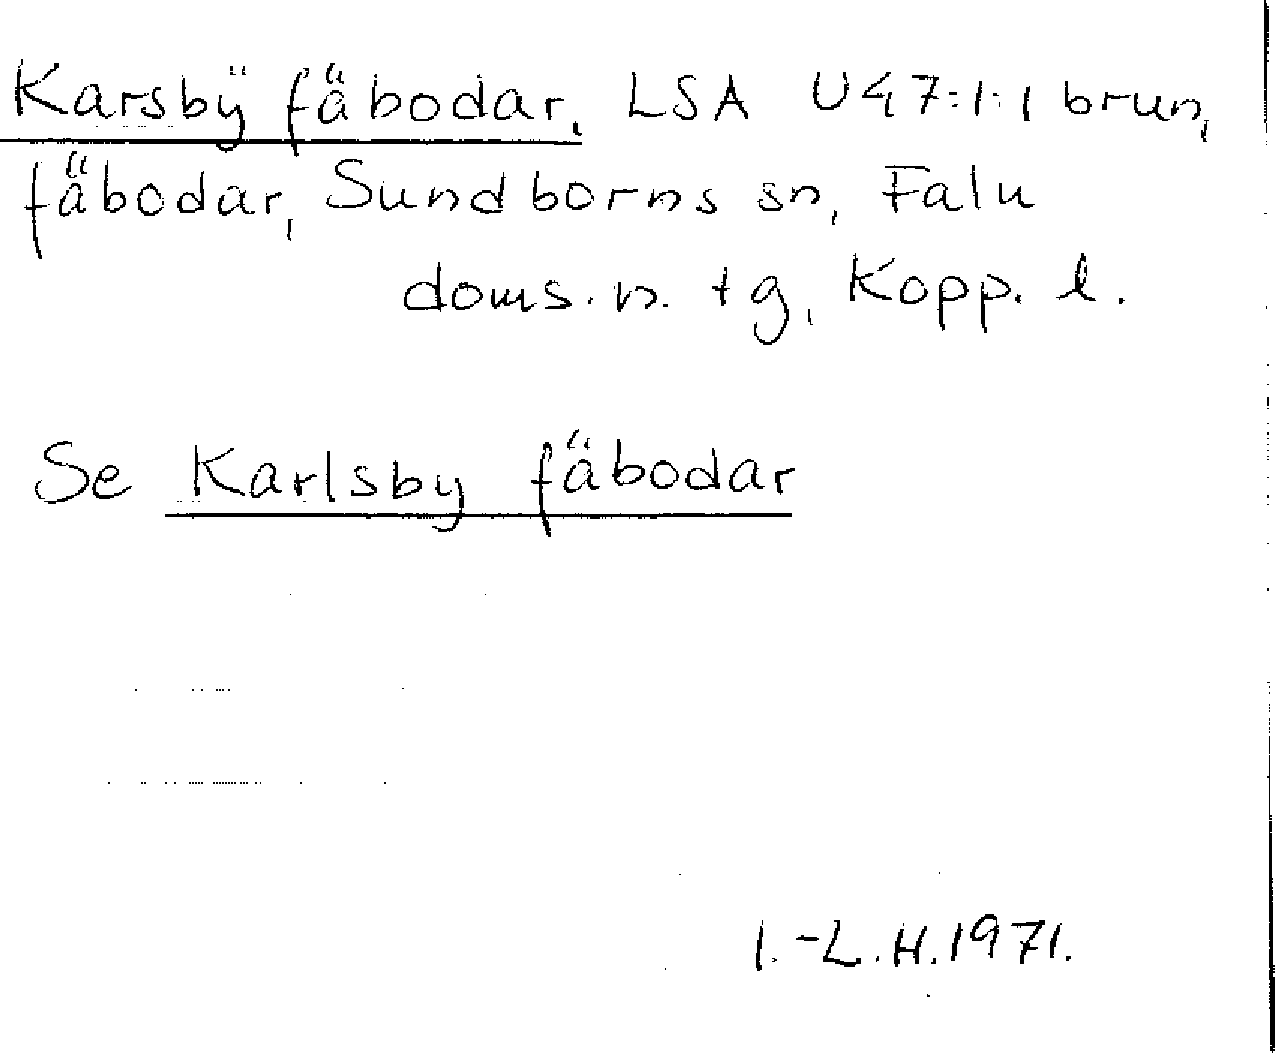 Karsbÿ fäbodar, LSA U47:1:1 brun,
fäbodar, Sundborns sn, Falu
doms.n. tg, Kopp. l.
Se Karlsby fäbodar
I.-L.H.1971.